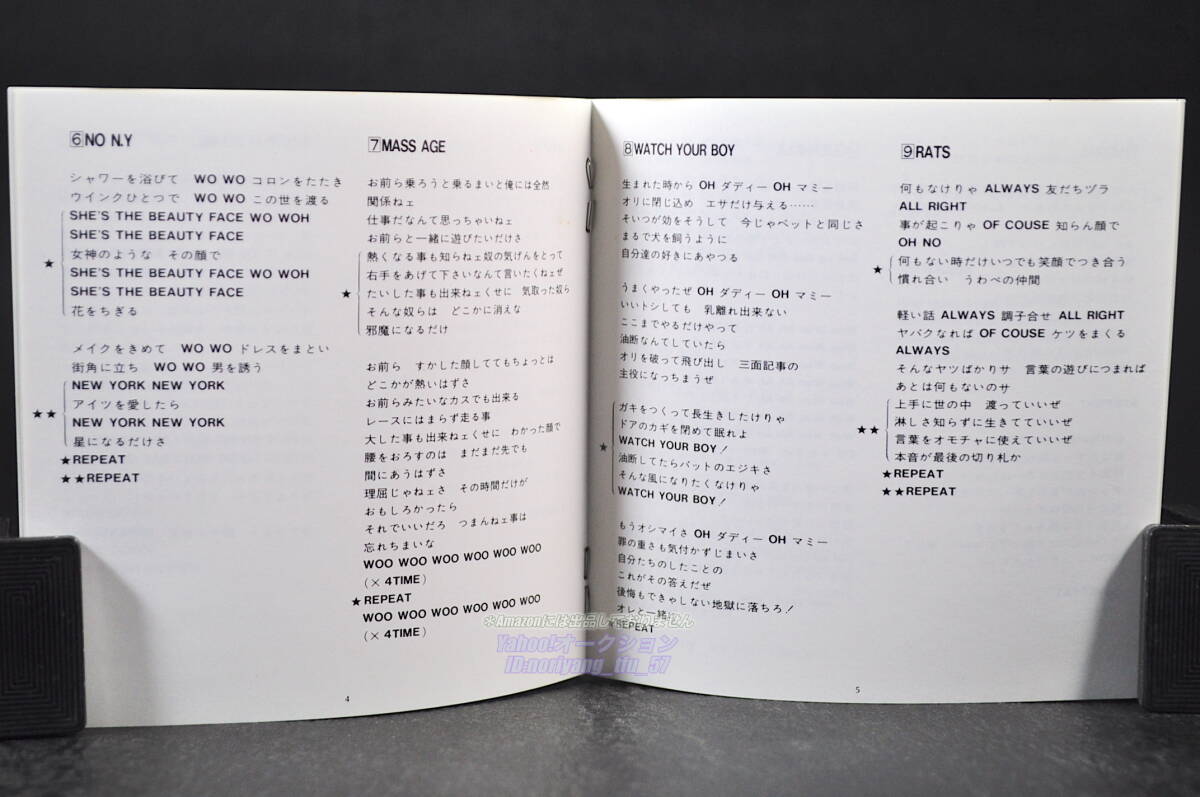 6 NO N.Y
シャワーを浴びて WO WO コロンをたたき
ウインクひとつで WO WO この世を渡る
SHE'S THE BEAUTY FACE WO WOH
SHE'S THE BEAUTY FACE
★ 女神のような その顔で
SHE'S THE BEAUTY FACE WO WOH
SHE'S THE BEAUTY FACE
花をちぎる
メイクをきめて WO WO ドレスをまとい
街角に立ち WO WO 男を誘う
NEW YORK NEW YORK
★★ アイツを愛したら
NEW YORK NEW YORK
星になるだけさ
★REPEAT
★★REPEAT
7 MASS AGE
お前ら乗ろうと乗るまいと俺には全然
関係ねェ
仕事だなんて思っちゃいねェ
お前らと一緒に遊びたいだけさ
熱くなる事も知らねェ奴の気げんをとって
右手をあげて下さいなんて言いたくねェぜ
★ たいした事も出来ねェくせに 気取った奴ら
そんな奴らは どこかに消えな
邪魔になるだけ
お前ら すかした顔しててもちょっとは
どこかが熱いはずさ
お前らみたいなカスでも出来る
レースにはまらず走る事
大した事も出来ねェくせに わかった顔で
腰をおろすのは まだまだ先でも
間にあうはずさ
理屈じゃねェさ その時間だけが
おもしろかったら
それでいいだろ つまんねェ事は
忘れちまいな
WOO WOO WOO WOO WOO WOO
(× 4TIME)
★REPEAT
WOO WOO WOO WOO WOO WOO
(× 4TIME)
4
8 WATCH YOUR BOY
生まれた時から OH ダディー OH マミー
オリに閉じ込め エサだけ与える……
そいつが効をそうして 今じゃペットと同じさ
まるで犬を飼うように
自分達の好きにあやつる
うまくやったぜ OH ダディー OH マミー
いいトシしても 乳離れ出来ない
ここまでやるだけやって
油断なんてしていたら
オリを破って飛び出し 三面記事の
主役になっちまうぜ
ガキをつくって長生きしたけりゃ
ドアのカギを閉めて眠れよ
★ WATCH YOUR BOY!
油断してたらバットのエジキさ
そんな風になりたくなけりゃ
WATCH YOUR BOY!
もうオシマイさ OH ダディー OH マミー
罪の重さも気付かずじまいさ
自分たちのしたことの
これがその答えだぜ
後悔もできゃしない地獄に落ちろ!
オレと一緒に
★REPEAT
5
9 RATS
何もなけりゃ ALWAYS 友だちヅラ
ALL RIGHT
事が起こりゃ OF COUSE 知らん顔で
OH NO
★ 何もない時だけいつでも笑顔でつき合う
慣れ合い うわべの仲間
軽い話 ALWAYS 調子合せ ALL RIGHT
ヤバクなれば OF COUSE ケツをまくる
ALWAYS
そんなヤツばかりサ 言葉の遊びにつまれば
あとは何もないのサ
上手に世の中 渡っていいぜ
★★ 淋しさ知らずに生きてていいぜ
言葉をオモチャに使えていいぜ
本音が最後の切り札か
★REPEAT
★★REPEAT
※Amazonには出品しておりません
Yahoo!オークション
ID:noriyang_ifu_57